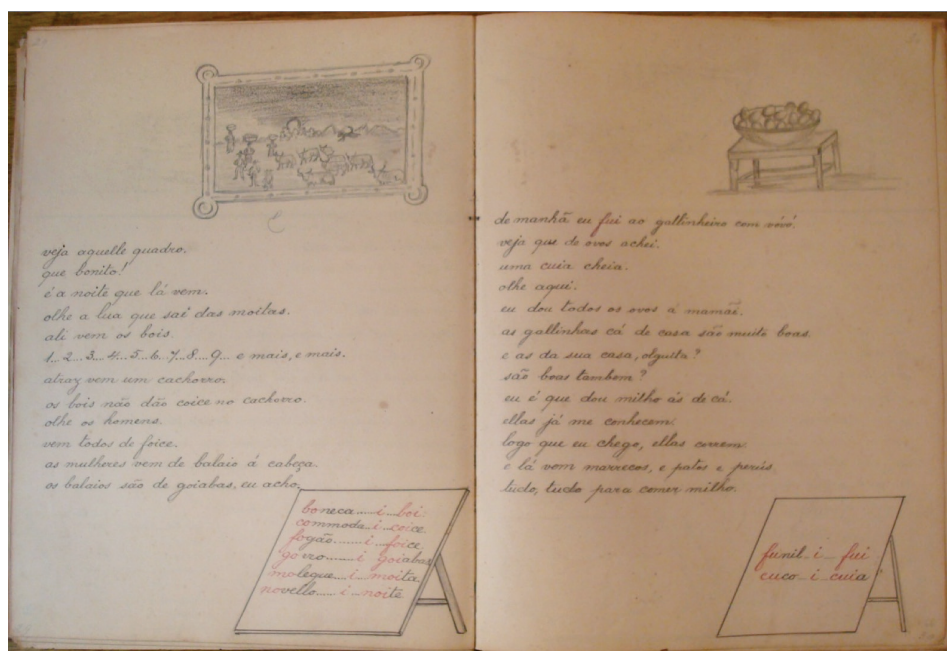 veja aquelle quadro.
que bonito!
é a noite que lá vem.
olhe a lua que sai das moitas.
ali vem os bois.
1...2...3...4...5...6...7...8...9... e mais, e mais.
atraz vem um cachorro.
os bois não dão coice no cachorro.
olhe os homens.
vem todos de foice.
as mulheres vem de balaio á cabeça.
os balaios são de goiabas, eu acho.
boneca......i...boi
commoda...i...coice
fogão........i...foice
gorro........i goiabas
moleque....i...moita
novello......i...noite
de manhã eu fui ao gallinheiro com vóvó.
veja que de ovos achei.
uma cuia cheia.
olhe aqui.
eu dou todos os ovos á mamãe.
as gallinhas cá de casa são muito boas.
e as da sua casa, olguita?
são boas tambem?
eu é que dou milho ás de cá.
ellas já me conhecem.
logo que eu chego, ellas correm.
e lá vem marrecos, e patos e perús.
tudo, tudo para comer milho.
funil...i...fui
cuco...i...cuia